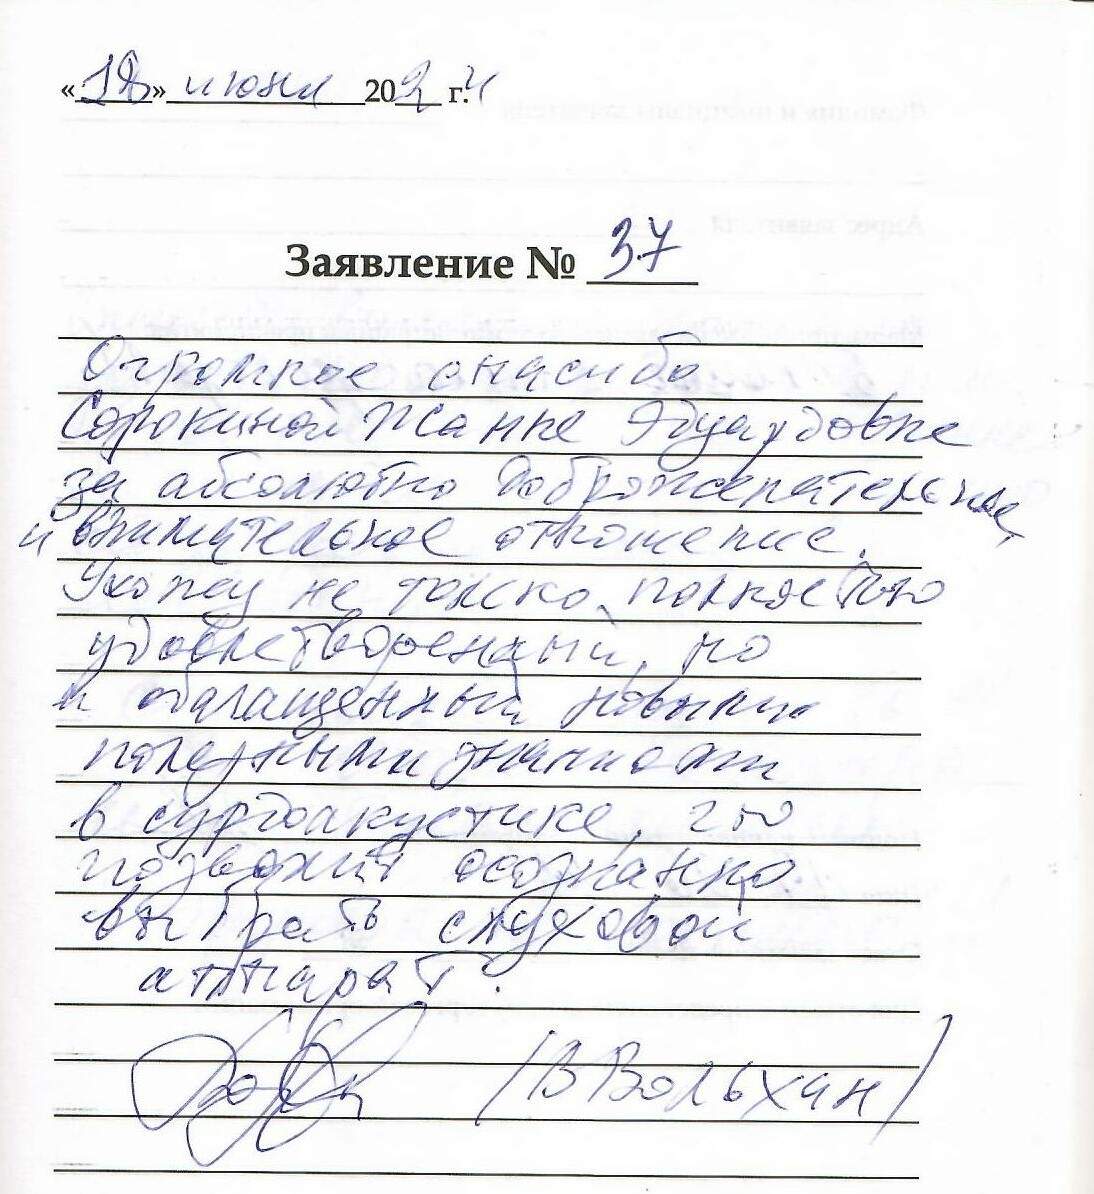 «18» июня 2024 г.
Заявление № 37
Огромное спасибо
Сорокиной Жанне Эдуардовне
за абсолютно доброжелательное
и внимательное отношение.
Ухожу не только полностью
удовлетворенный, но
и обогащенный новыми
полезными знаниями
в сурдоакустике, что
позволит осознанно
выбрать слуховой
аппарат.
/В Вольхан/